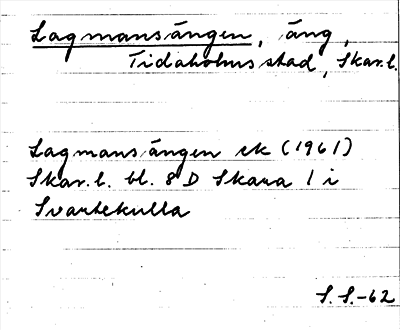 Lagmansängen, äng,
Tidaholms stad, Skar.l.
Lagmansängen ek (1961)
Skar.l. bl. 8 D Skara 1 i
Svartekulla
S.S.-62